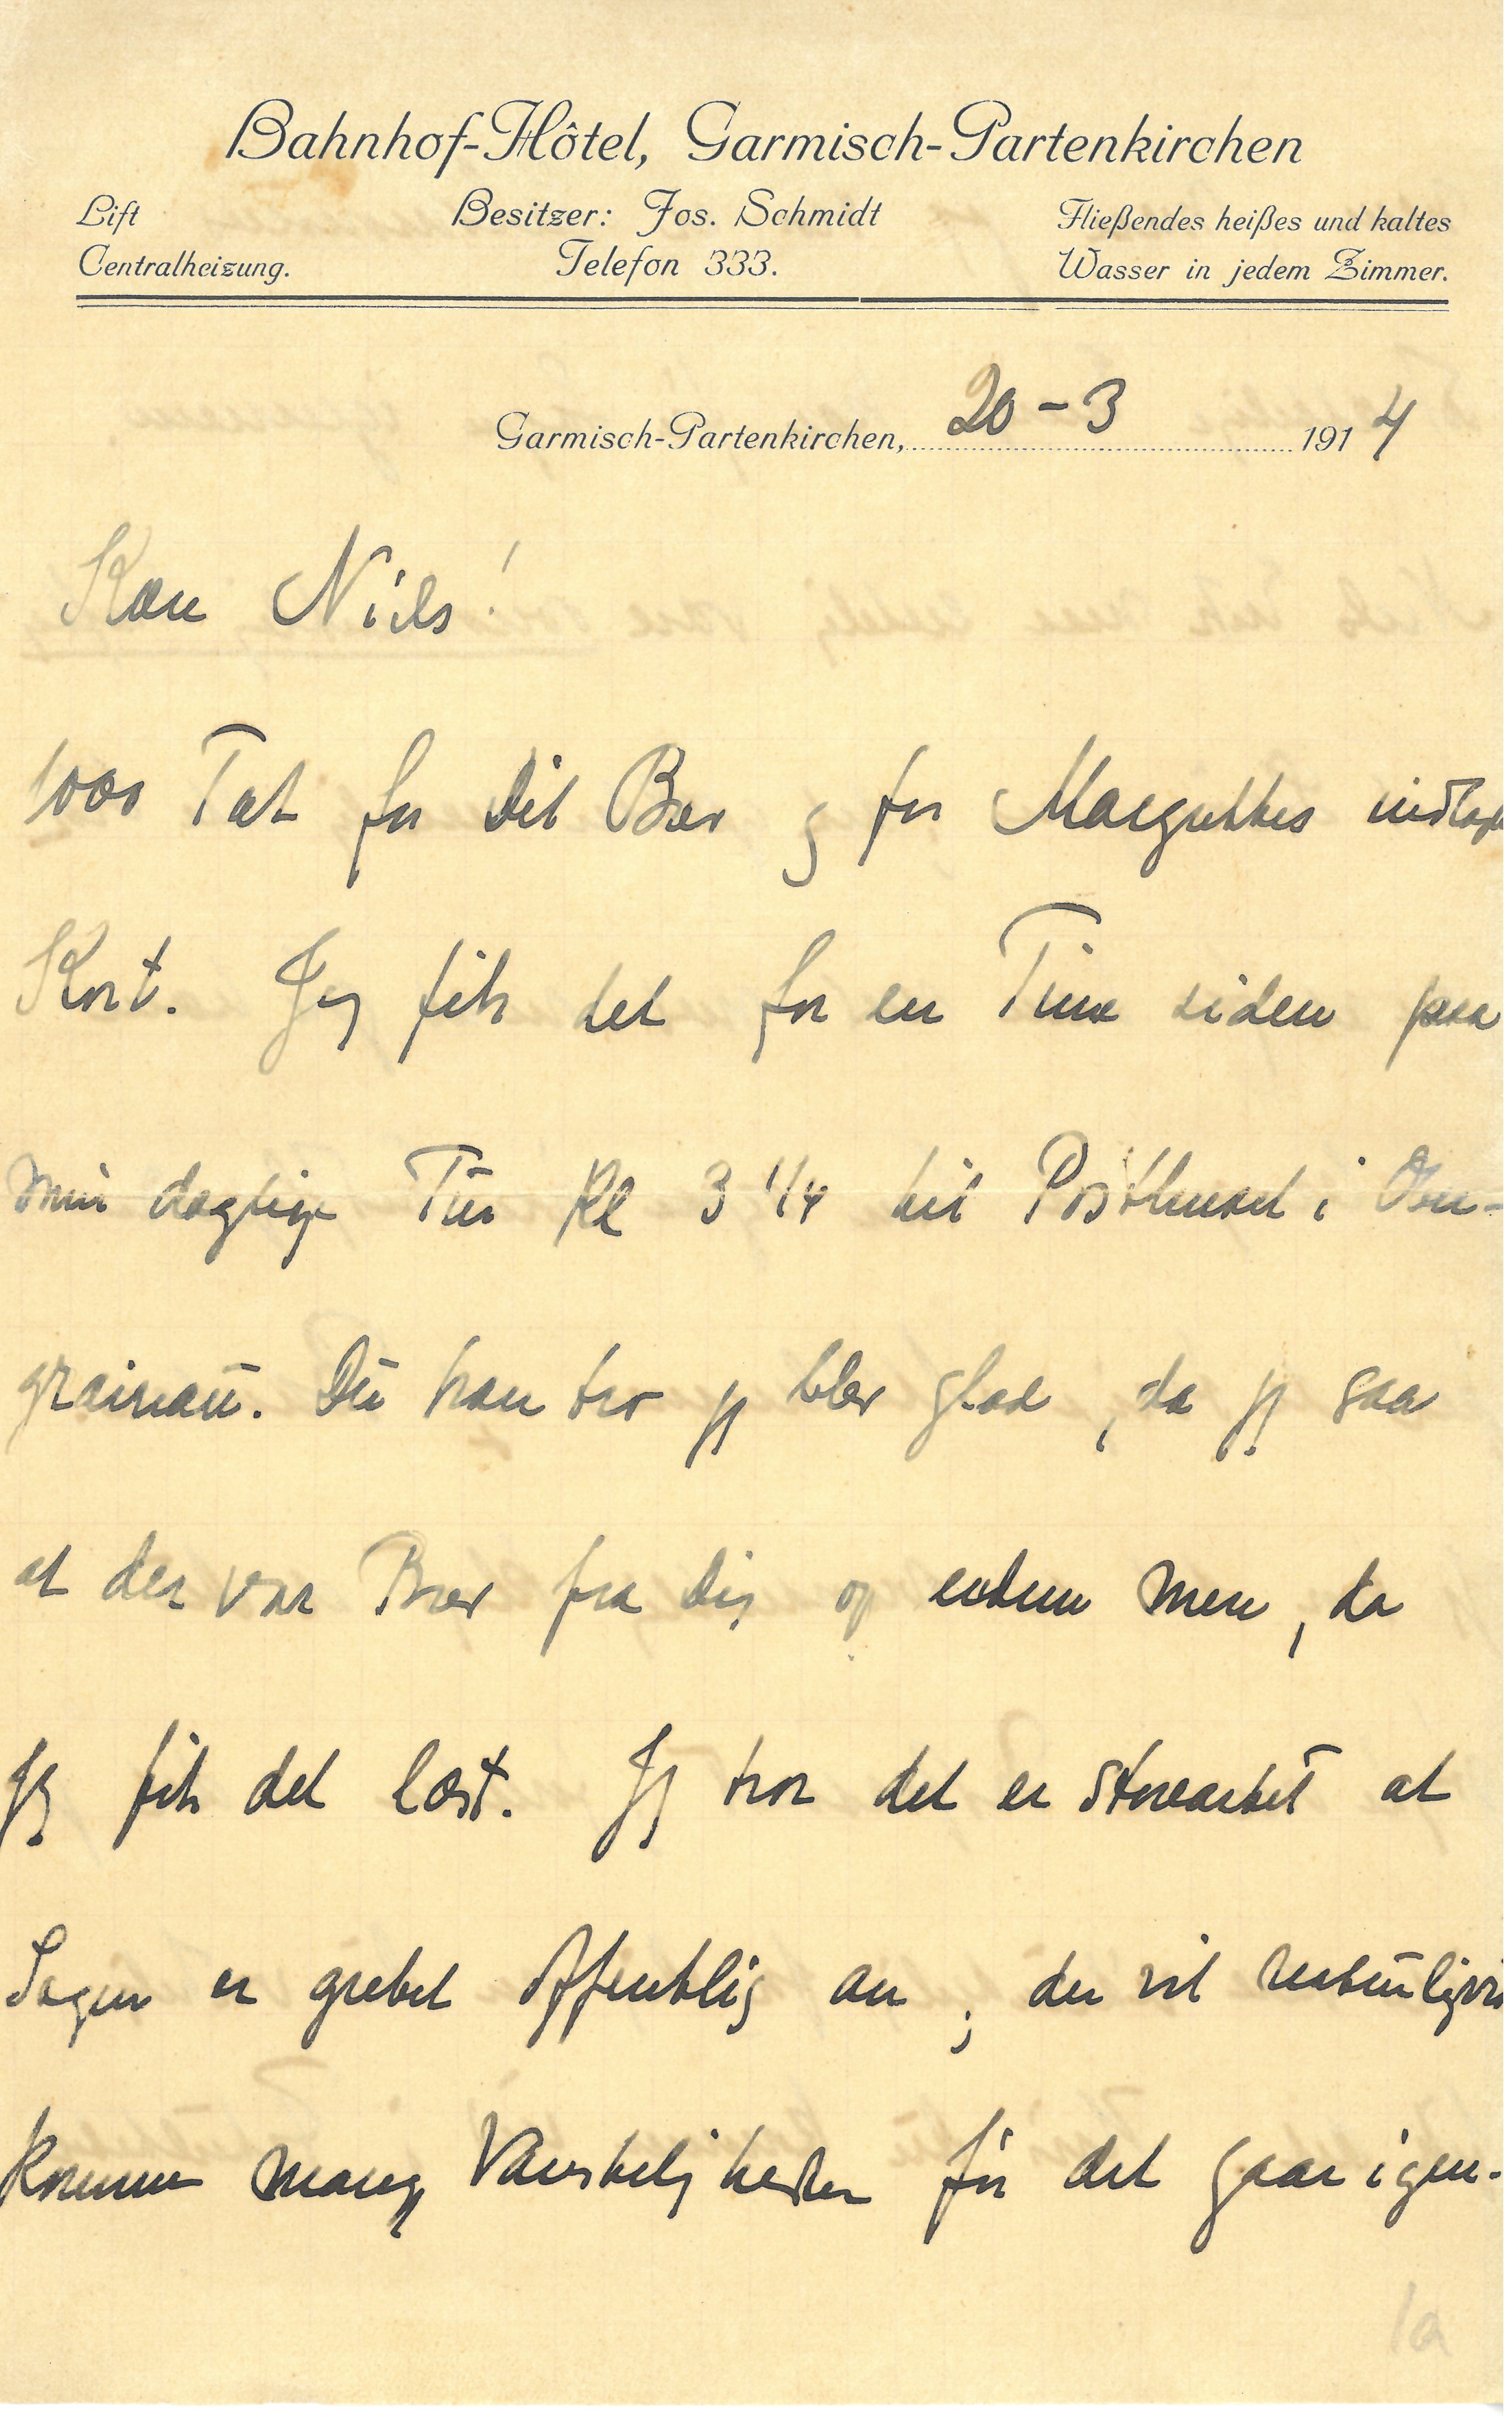 Bahnhof-Hôtel, Garmisch-Partenkirchen
Lift Besitzer: Jos. Schmidt Fließendes heißes und kaltes
Centralheizung. Telefon 333. Wasser in jedem Zimmer.
Garmisch-Partenkirchen, 20-3 1914
Kære Niels!
1000 Tak for Dit Brev og for Margrethes
Kort. Jeg fik det for en Time siden paa
min daglige Tur Kl 3 1/4 til Posthuset i Ober-
grainau. Du kan tro jeg blev glad, da jeg saa
at der var Brev fra Dig og endnu mere, da
jeg fik det læst. Jeg tror det er storartet at
Sagen er grebet offentlig an; der vil naturligvis
komme mange Vanskeligheder før det gaar igen-
1a